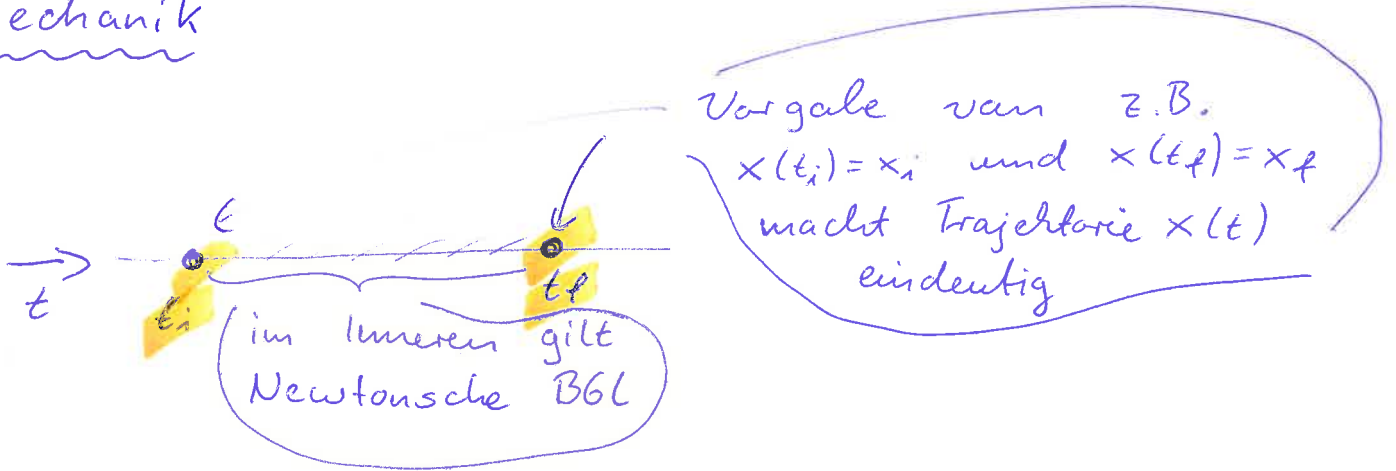 echanik
Vorgabe von z.B.
x(t_i) = x_i und x(t_f) = x_f
macht Trajektorie x(t)
eindeutig
t
t
t_i
t_f
im Inneren gilt
Newtonsche BGL